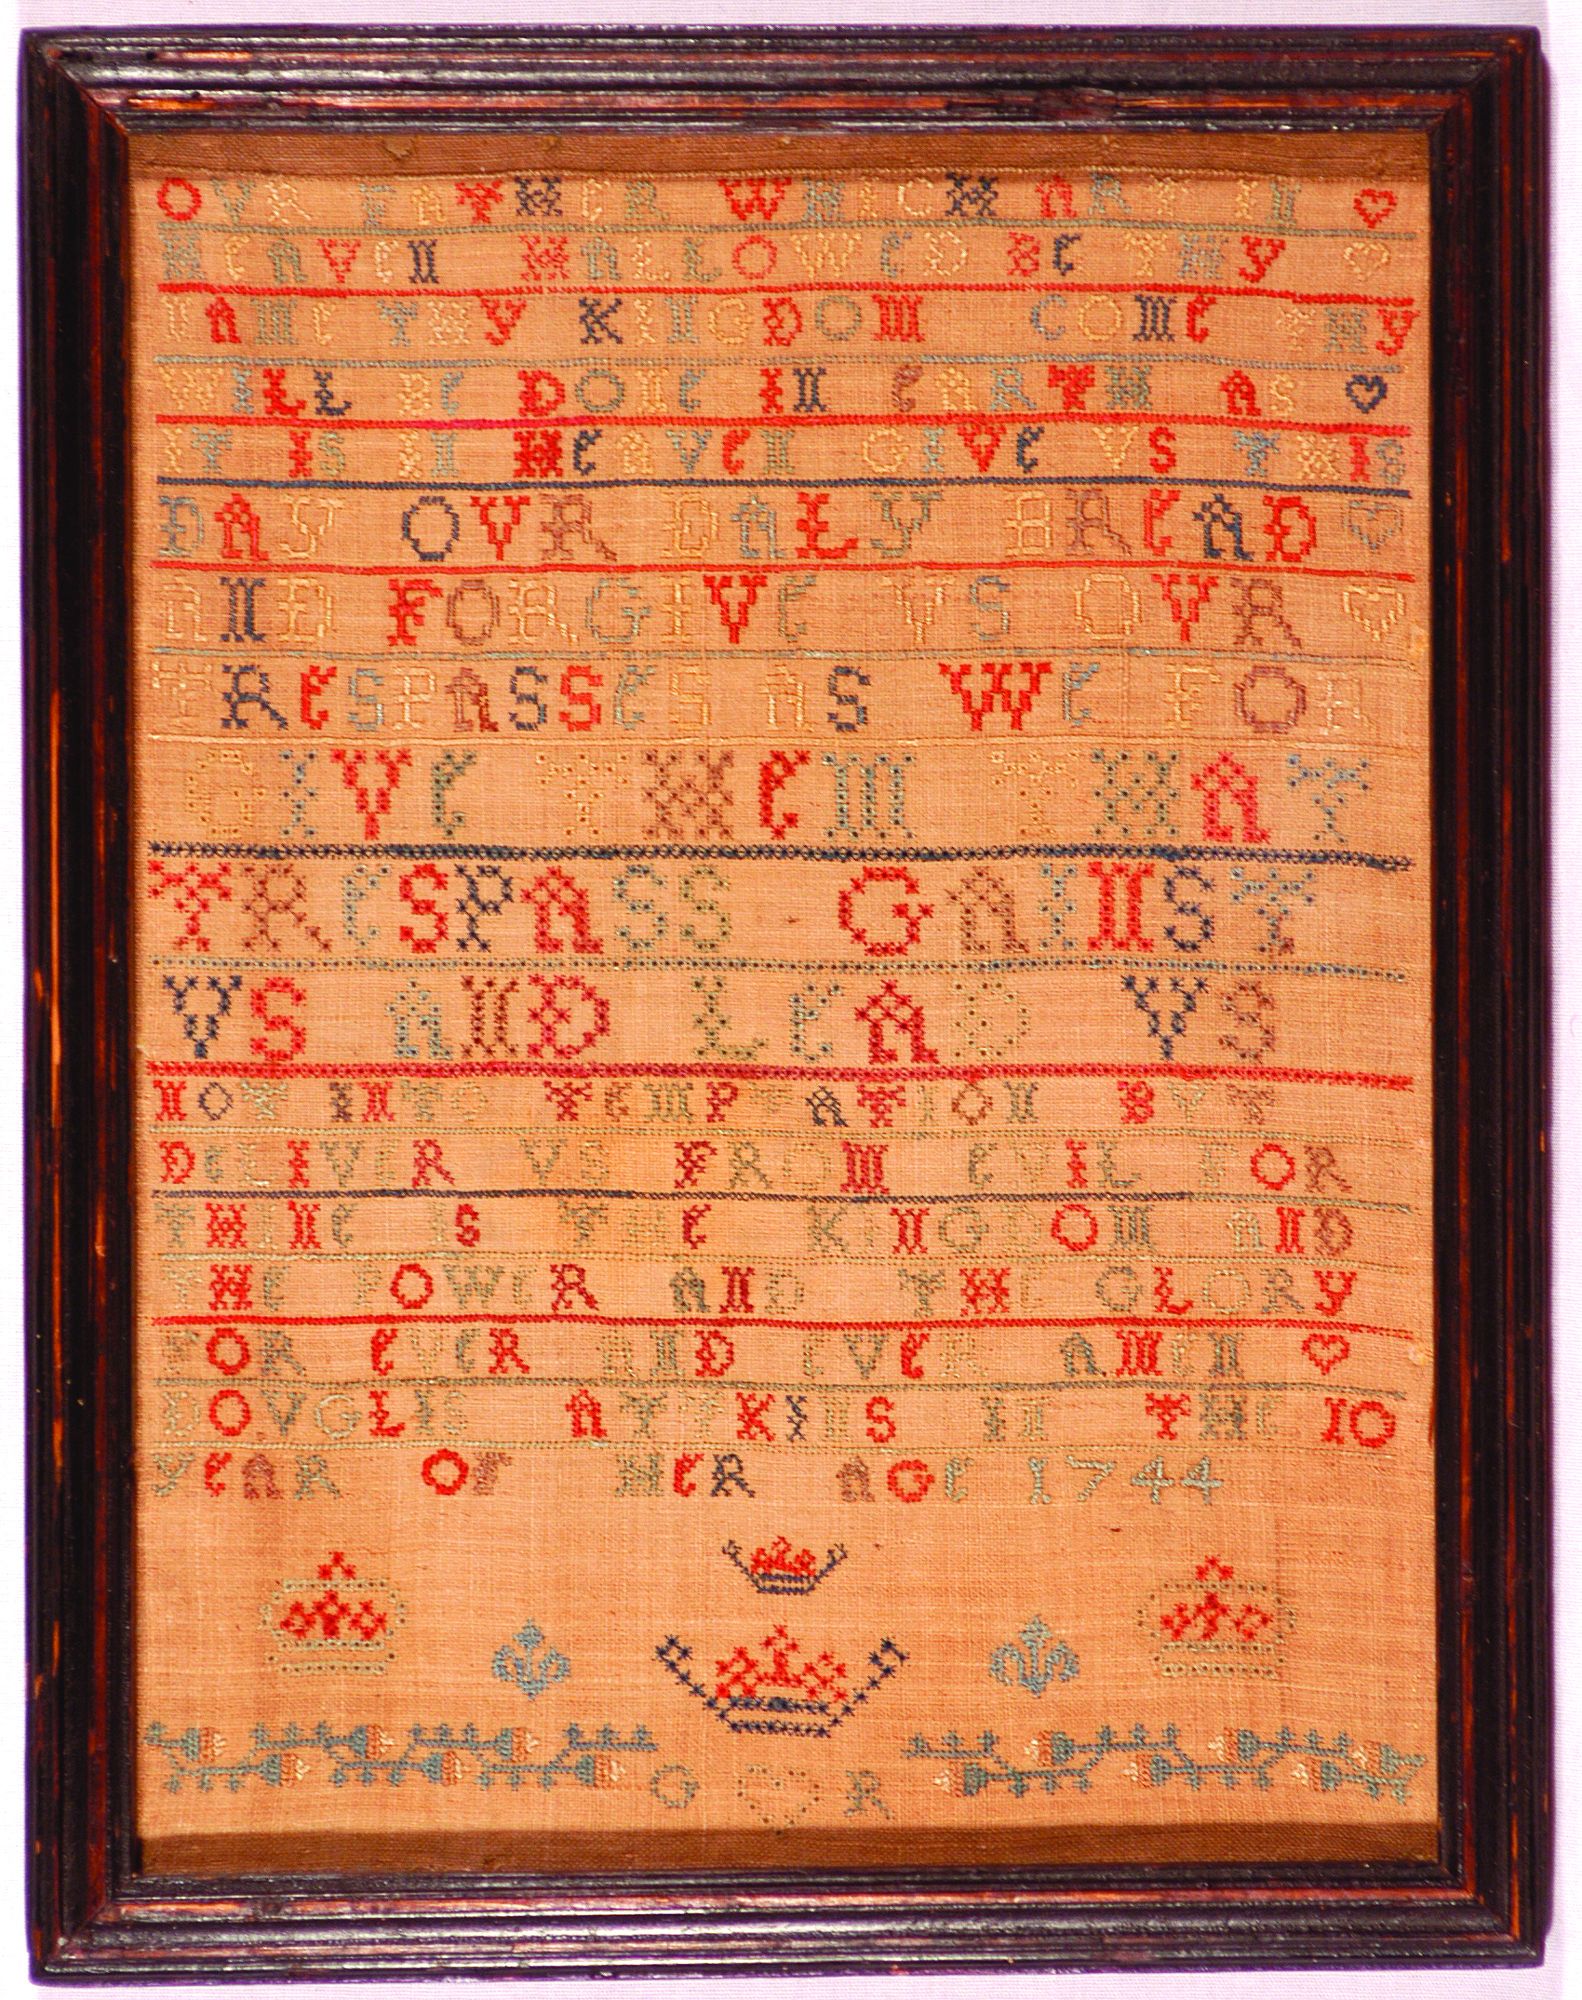 OVR FATHER WHICH ART IN
HEAVEN HALLOWED BE THY
NAME THY KINGDOM COME THY
WILL BE DONE IN EARTH AS
IT IS IN HEAVEN GIVE VS THIS
DAY OVR DALY BREAD
AND FORGIVE VS OVR
TRESPASSES AS WE FOR
GIVE THEM THAT
TRESPASS GAINST
VS AND LEAD VS
NOT INTO TEMPTATION BVT
DELIVER VS FROM EVIL FOR
THINE IS THE KINGDOM AND
THE POWER AND THE GLORY
FOR EVER AND EVER AMEN
DOVGLIS ATTKINS IN THE 10
YEAR OF HER AGE 1744
G R